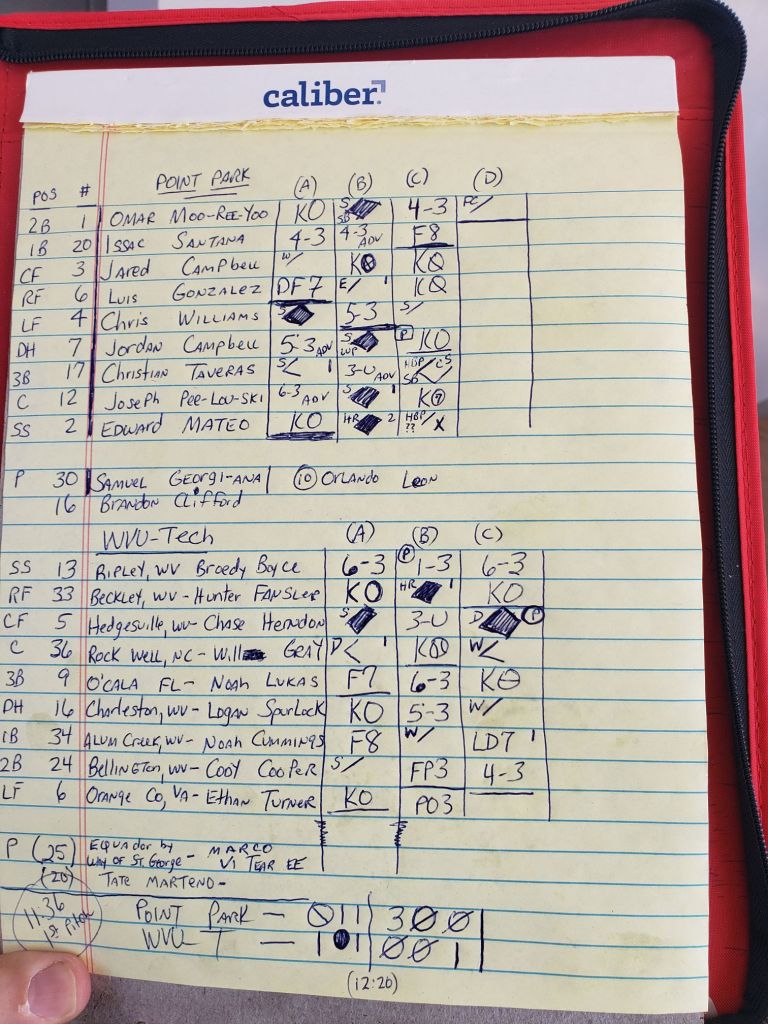 caliber
POINT PARK (A) (B) (C) (D)
POS #
2B 1 OMAR MOO-REE-YOO KO S SB 4-3 FC/
1B 20 ISSAC SANTANA 4-3 4-3 ADV F8
CF 3 Jared Campbell W/ KO KO
RF 6 Luis GONZALEZ DF7 E/ 1 KO
LF 4 Chris WILLIAMS S 5-3 S/
DH 7 Jordan Campbell 5-3 ADV S WP P KO
3B 17 Christian TAVERAS S< 1 3-U ADV HBP/ CS SB
C 12 JOSEPH PEE-LOU-SKI 6-3 ADV S 1 KO
SS 2 EDWARD MATEO KO HR 2 HBP/ ?? X
P 30 SAMUEL GEORGI-ANA 10 ORLANDO LEON
16 Brandon Clifford
WVU-Tech (A) (B) (C)
SS 13 RIPLEY, WV Broedy Boyce 6-3 P 1-3 6-3
RF 33 BECKLEY, WV - Hunter FANSLER KO HR 1 KO
CF 5 Hedgesville, WV - CHASE Herndon S 3-U D P
C 36 ROCK WELL, NC - Will GRAY D< 1 KO W<
3B 9 O'CALA FL - NOAH LUKAS F7 6-3 KO
DH 16 Charleston, WV - LOGAN SPURLOCK KO 5-3 W/
1B 34 ALUM Creek, WV - NOAH CUMMINGS F8 W/ LD7 1
2B 24 BELLINGTON, WV - COOY COOPER S/ FP3 4-3
LF 6 ORANGE CO, VA - ETHAN TURNER KO PO3
P (25) EQUADOR by
WAY OF ST. George - MARCO
VI TEAR EE
(20) TATE MARTENO -
11:36
1st Pitch
POINT PARK — 0 1 1 3 0 0
WVU-T — 1 0 1 0 0 1
(12:20)